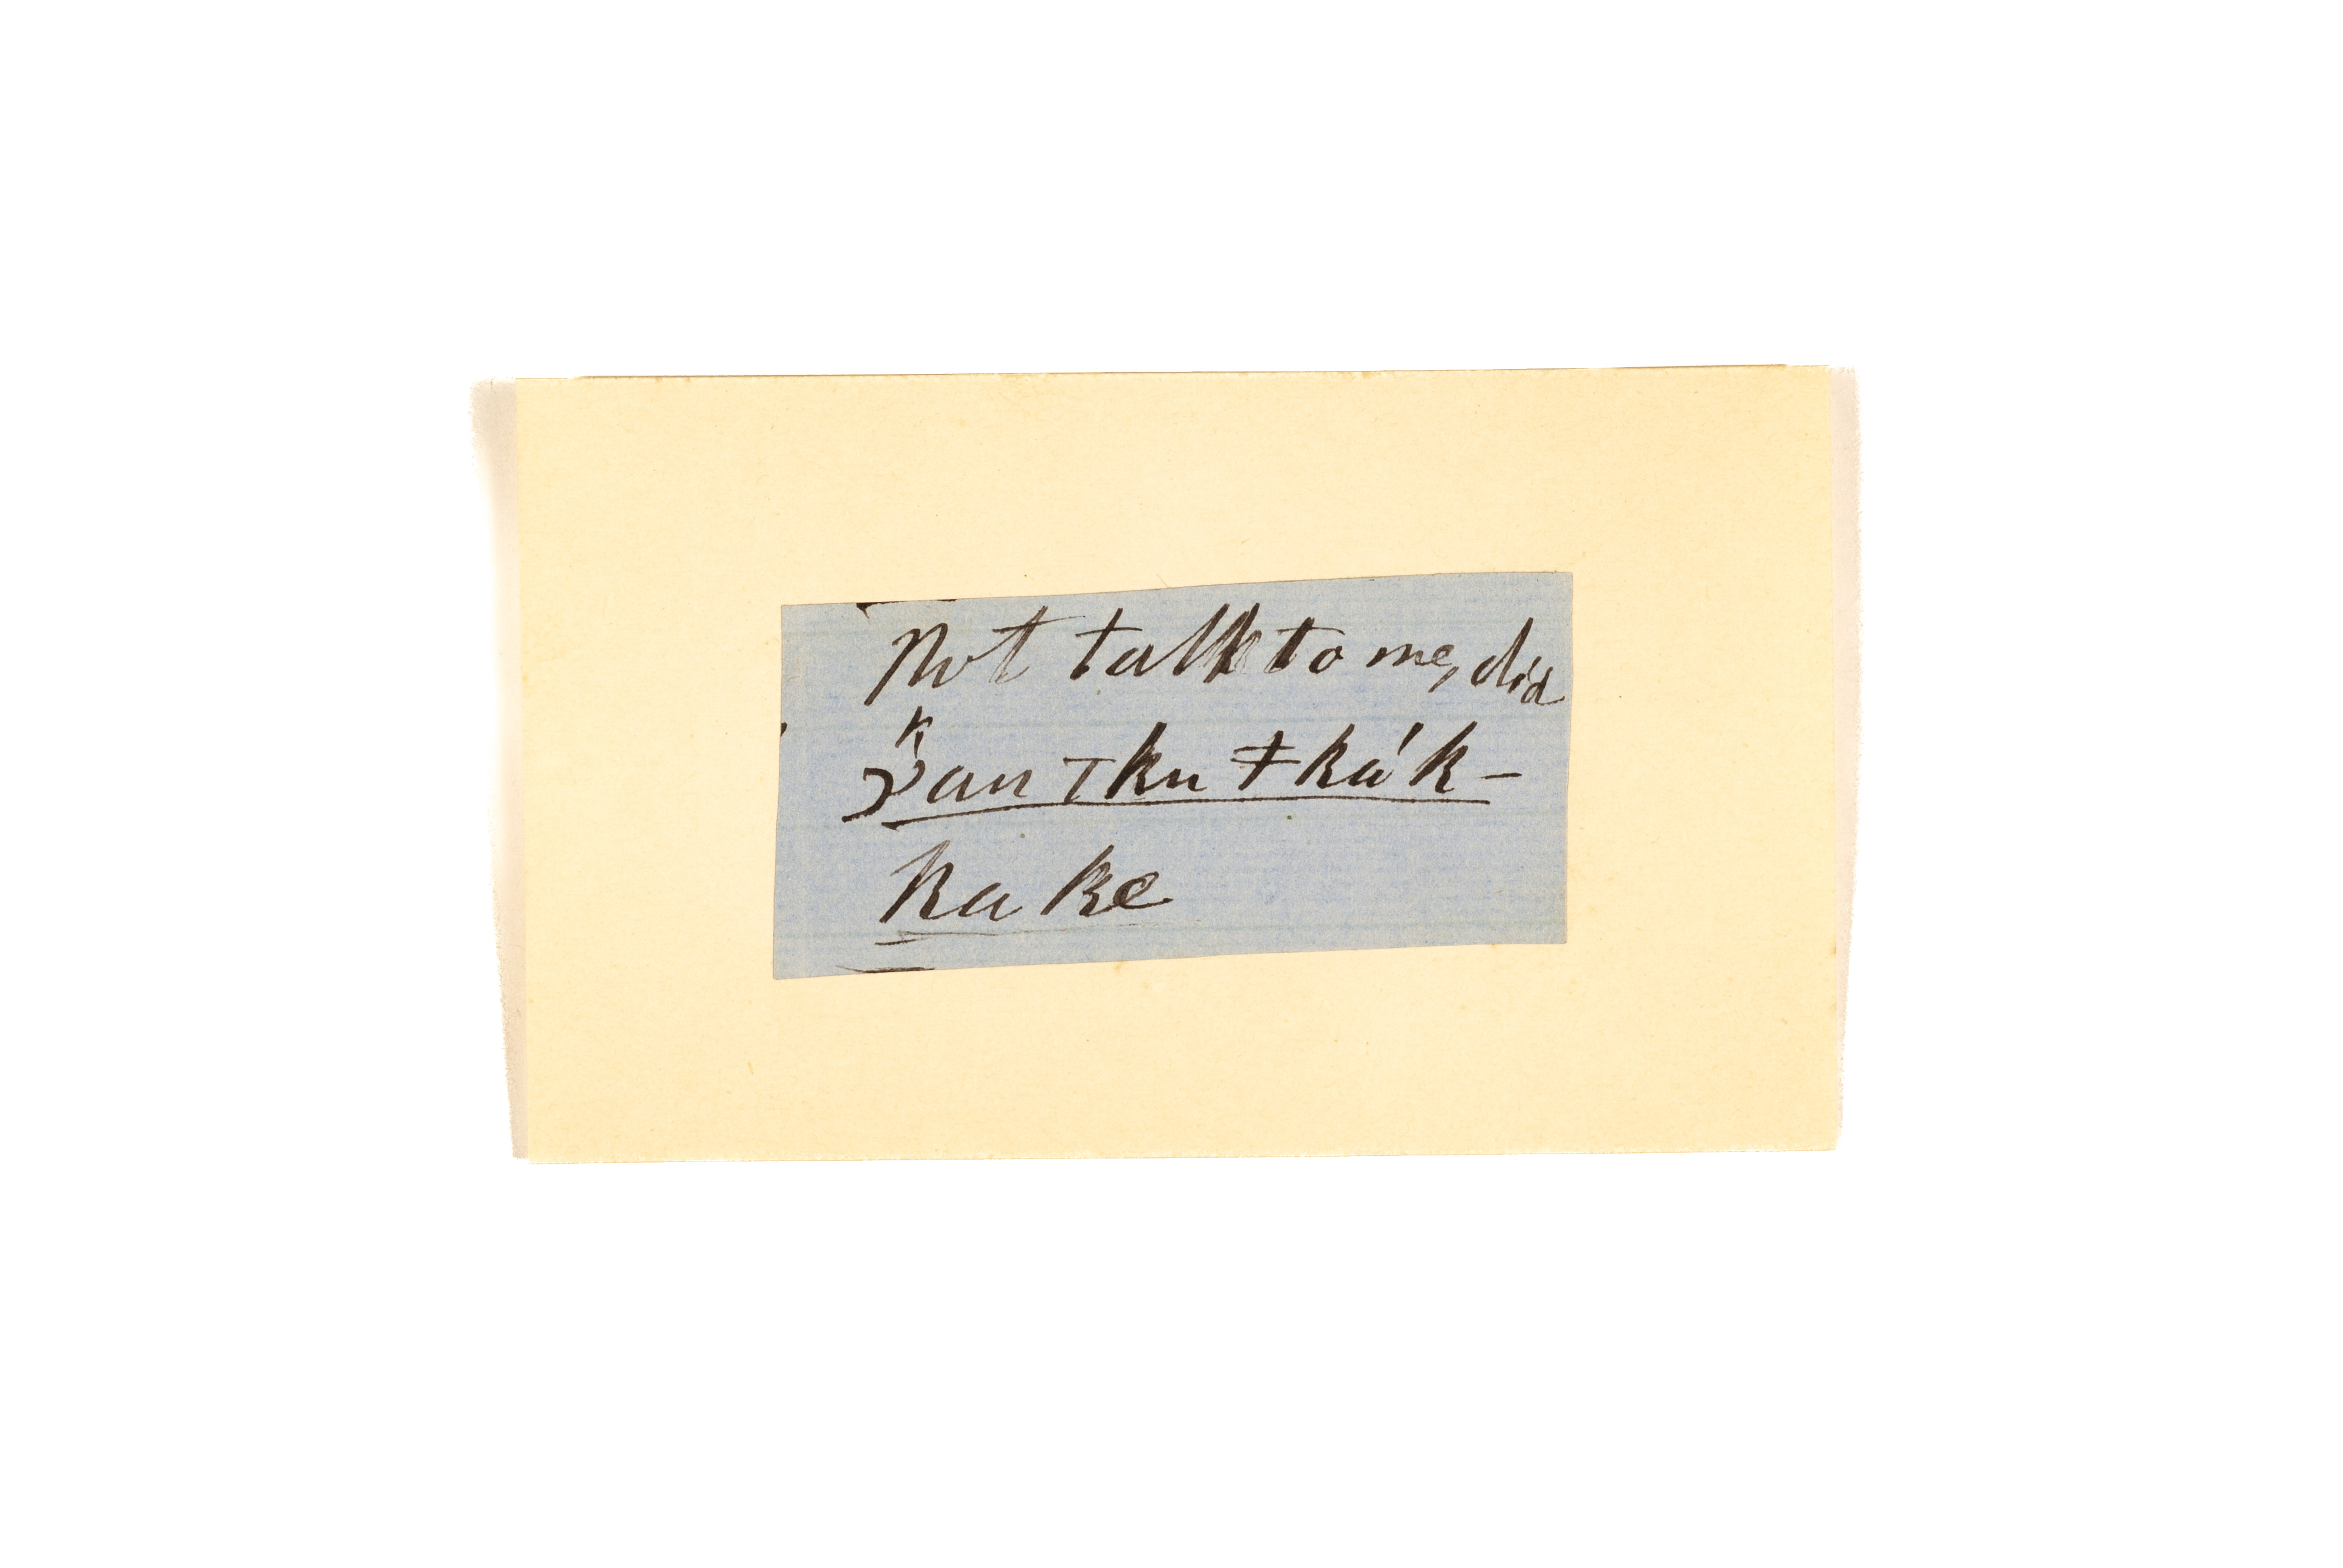 Not talk to me, did
an ⊤ ku Ŧ kák-
ka ke